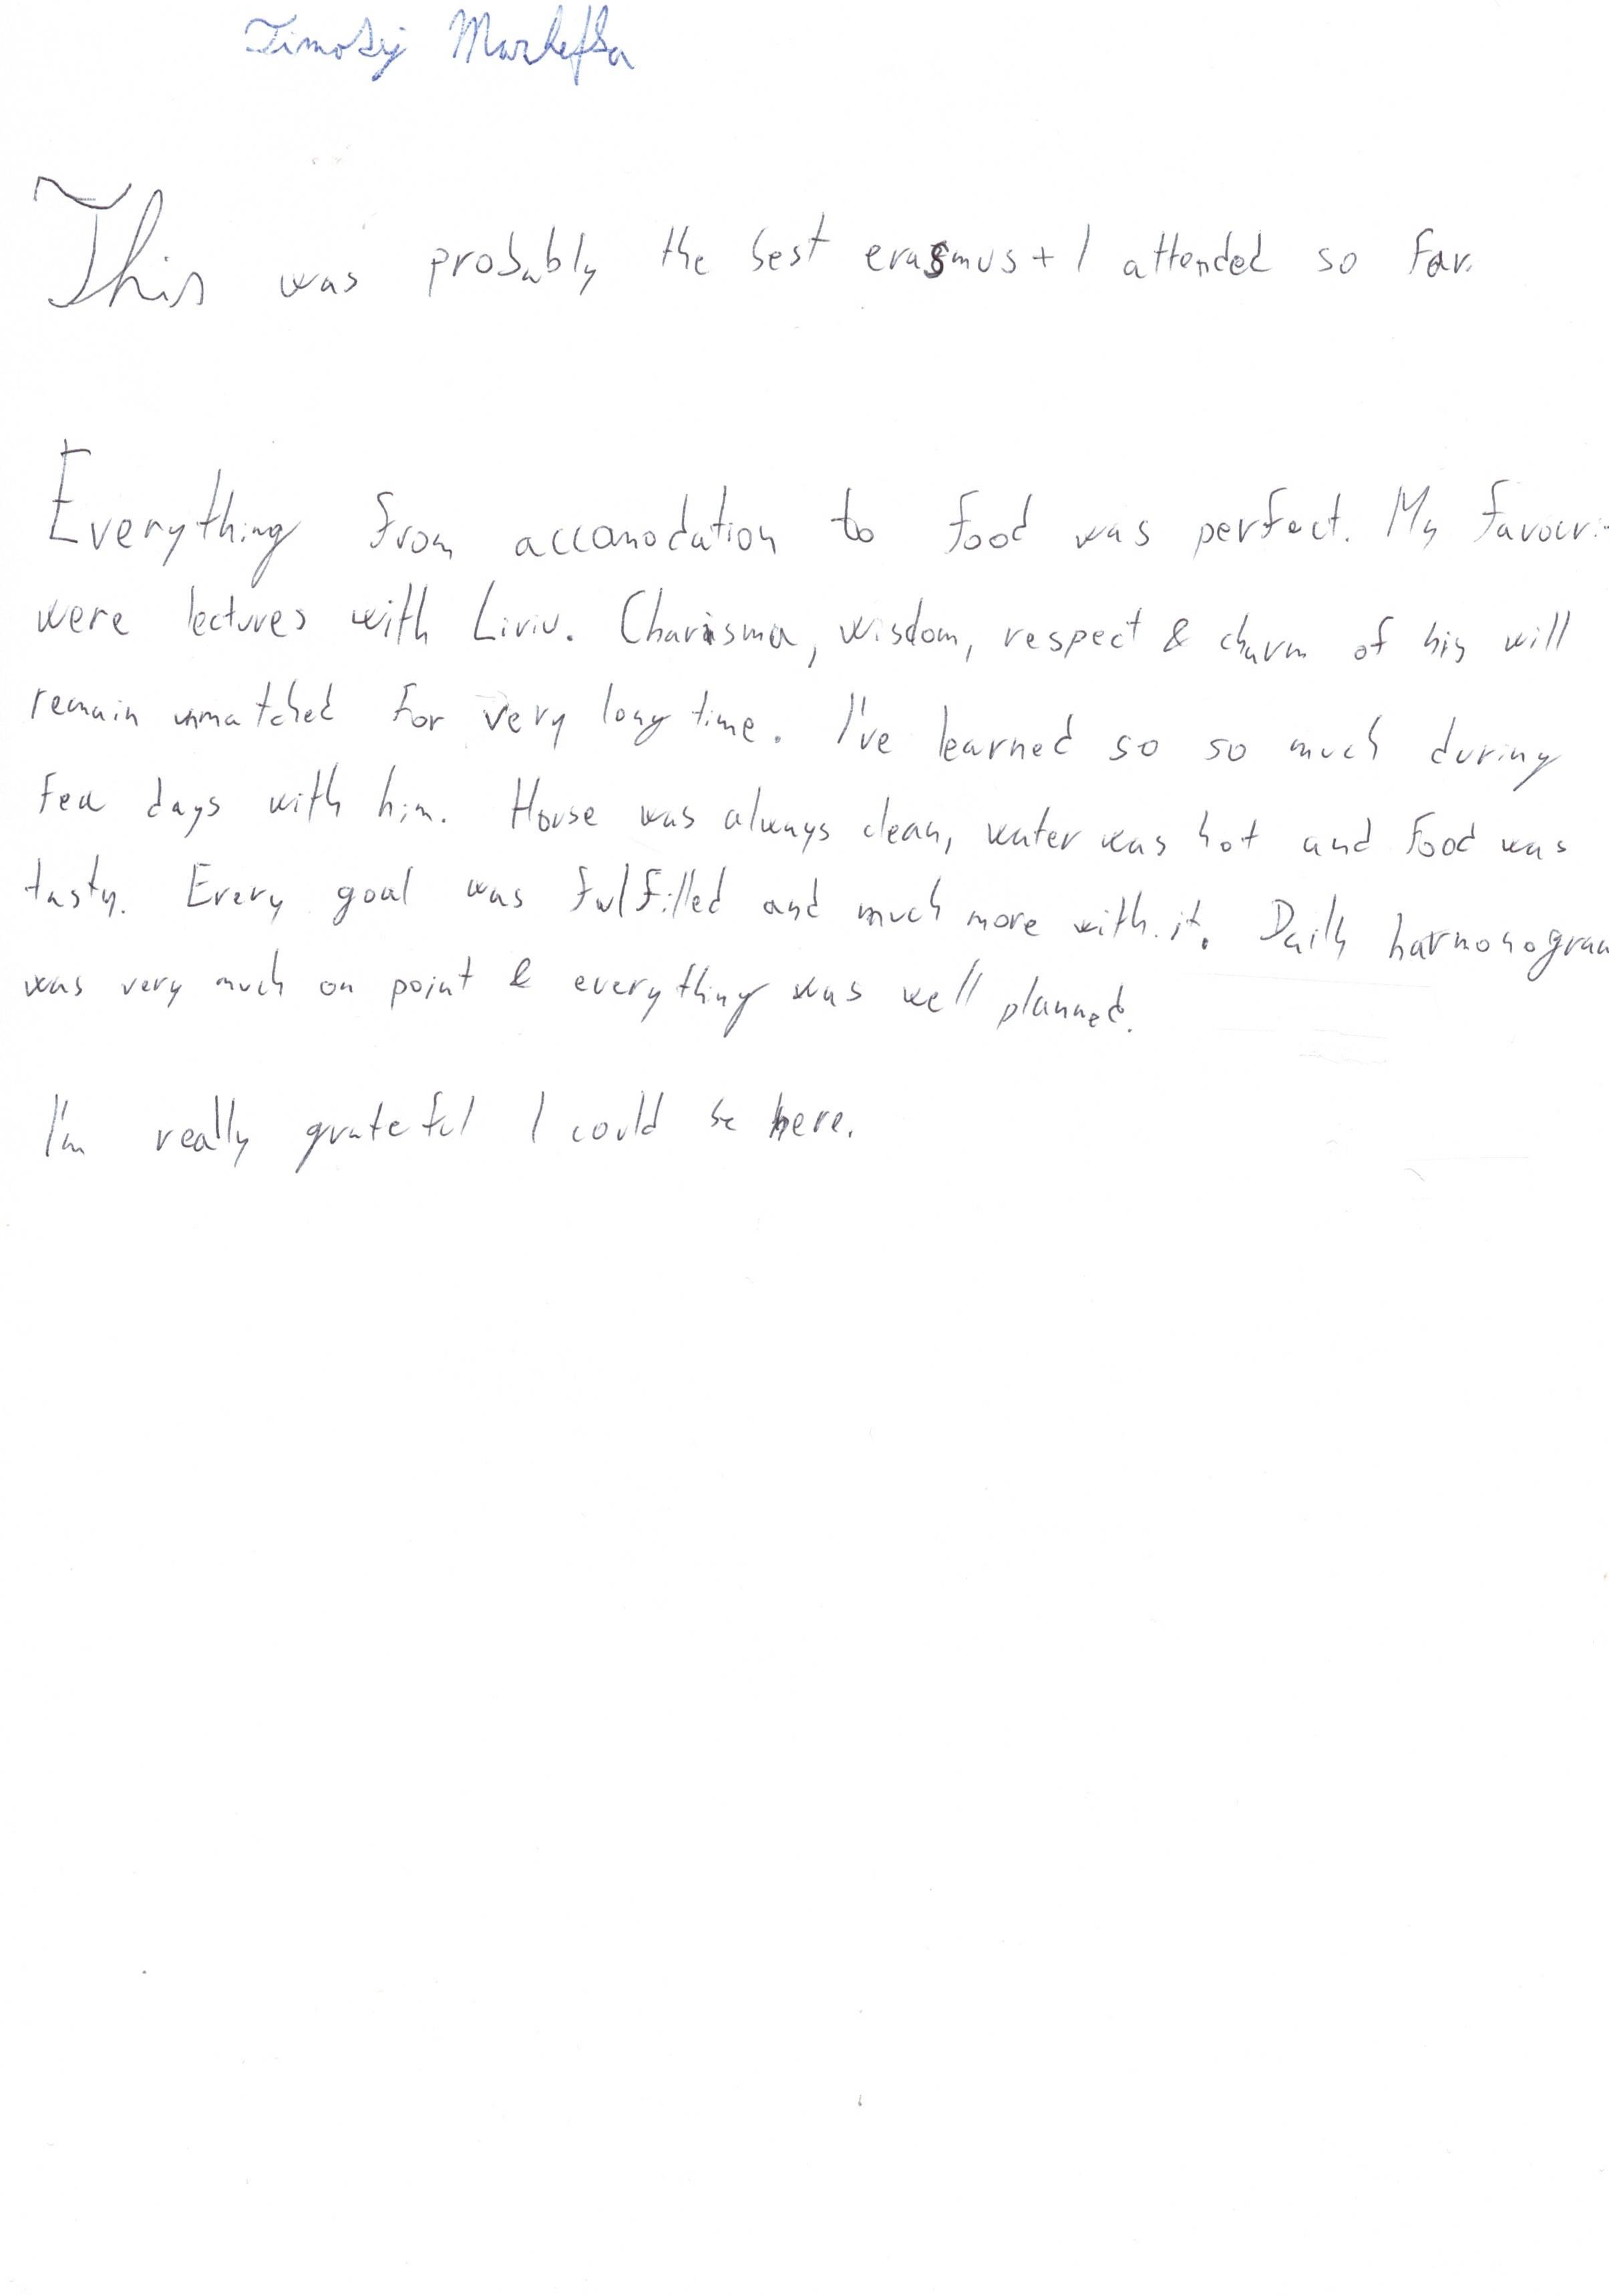 This was probably the best erasmus+ I attended so far.
Everything from accomodation to food was perfect. My favouri
were lectures with Liviu. Charisma, wisdom, respect & charm of his will
remain unmatched for very long time. I've learned so so much during
few days with him. House was always clean, water was hot and food was
tasty. Every goal was fulfilled and much more with it. Daily harmonogram
was very much on point & everything was well planned.
I'm really grateful I could be here.